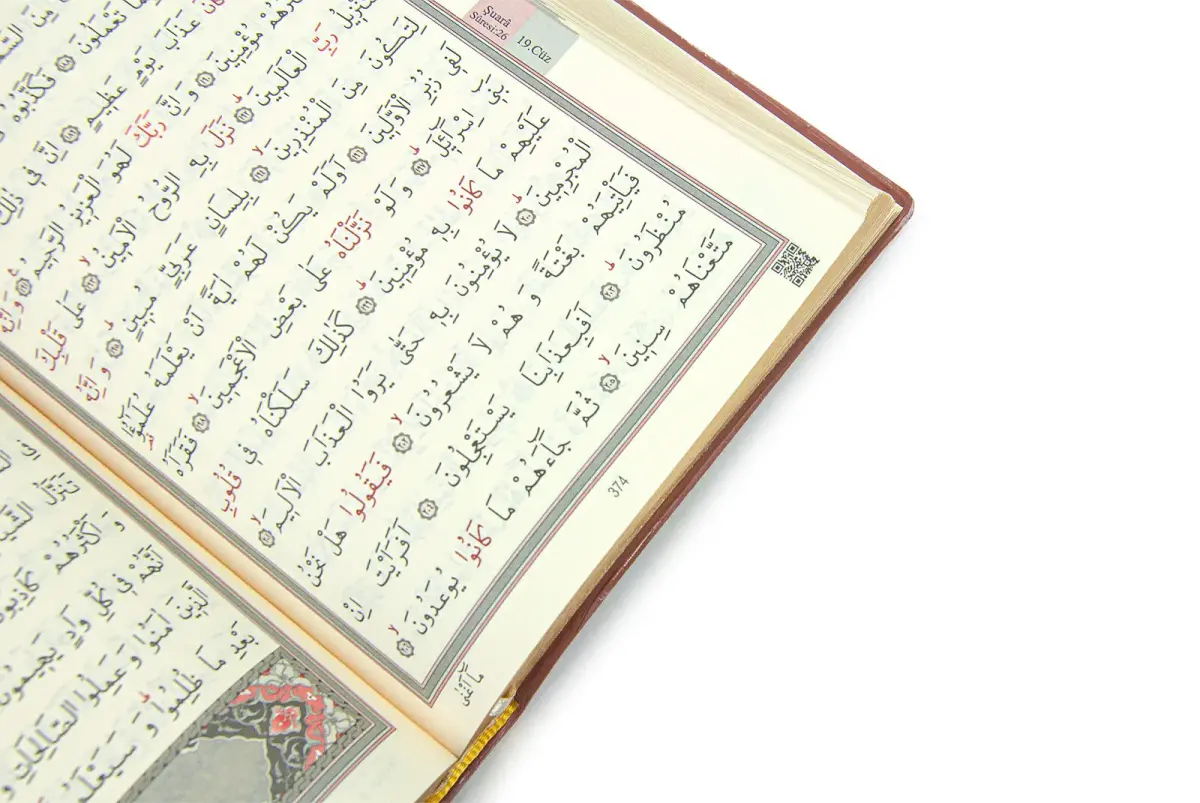 Şuarâ
Sûresi:26
19.Cüz
مِنَ
تَعْمَلُونَ ﴿١٨٨﴾ فَكَذَّبُوهُ
كَانَ عَذَابَ يَوْمٍ عَظِيمٍ ﴿١٨٩﴾ اِنَّ فِي ذٰلِكَ
مُؤْمِنِينَ ﴿١٩٠﴾ وَاِنَّ رَبَّكَ لَهُوَ الْعَزِيزُ الرَّحِيمُ ﴿١٩١﴾ وَاِنَّهُ
رَبِّ الْعَالَمِينَ ﴿١٩٢﴾ نَزَلَ بِهِ الرُّوحُ الْاَمِينُ ﴿١٩٣﴾ عَلٰى قَلْبِكَ
لِتَكُونَ مِنَ الْمُنْذِرِينَ ﴿١٩٤﴾ بِلِسَانٍ عَرَبِيٍّ مُبِينٍ ﴿١٩٥﴾ وَاِنَّهُ
لَفِي زُبُرِ الْاَوَّلِينَ ﴿١٩٦﴾ اَوَلَمْ يَكُنْ لَهُمْ اٰيَةً اَنْ يَعْلَمَهُ عُلَمٰٓؤُا
بَنِي اِسْرَٓائِلَ ﴿١٩٧﴾ وَلَوْ نَزَّلْنَاهُ عَلٰى بَعْضِ الْاَعْجَمِينَ ﴿١٩٨﴾ فَقَرَاَهُ
عَلَيْهِمْ مَا كَانُوا بِهِ مُؤْمِنِينَ ﴿١٩٩﴾ كَذٰلِكَ سَلَكْنَاهُ فِي قُلُوبِ
الْمُجْرِمِينَ ﴿٢٠٠﴾ لَا يُؤْمِنُونَ بِهِ حَتّٰى يَرَوُا الْعَذَابَ الْاَلِيمَ ﴿٢٠١﴾
فَيَأْتِيَهُمْ بَغْتَةً وَهُمْ لَا يَشْعُرُونَ ﴿٢٠٢﴾ فَيَقُولُوا هَلْ نَحْنُ
مُنْظَرُونَ ﴿٢٠٣﴾ اَفَبِعَذَابِنَا يَسْتَعْجِلُونَ ﴿٢٠٤﴾ اَفَرَاَيْتَ اِنْ
مَتَّعْنَاهُمْ سِنِينَ ﴿٢٠٥﴾ ثُمَّ جَٓاءَهُمْ مَا كَانُوا يُوعَدُونَ ﴿٢٠٦﴾
مَٓا اَغْنٰى
374
تَنَزَّلُ
وَاَكْثَرُهُمْ كَاذِبُونَ
اَنَّهُمْ فِي كُلِّ وَادٍ يَهِيمُونَ
الَّذِينَ اٰمَنُوا وَعَمِلُوا الصَّالِحَاتِ
بَعْدِ مَا ظُلِمُوا وَسَيَعْلَمُ